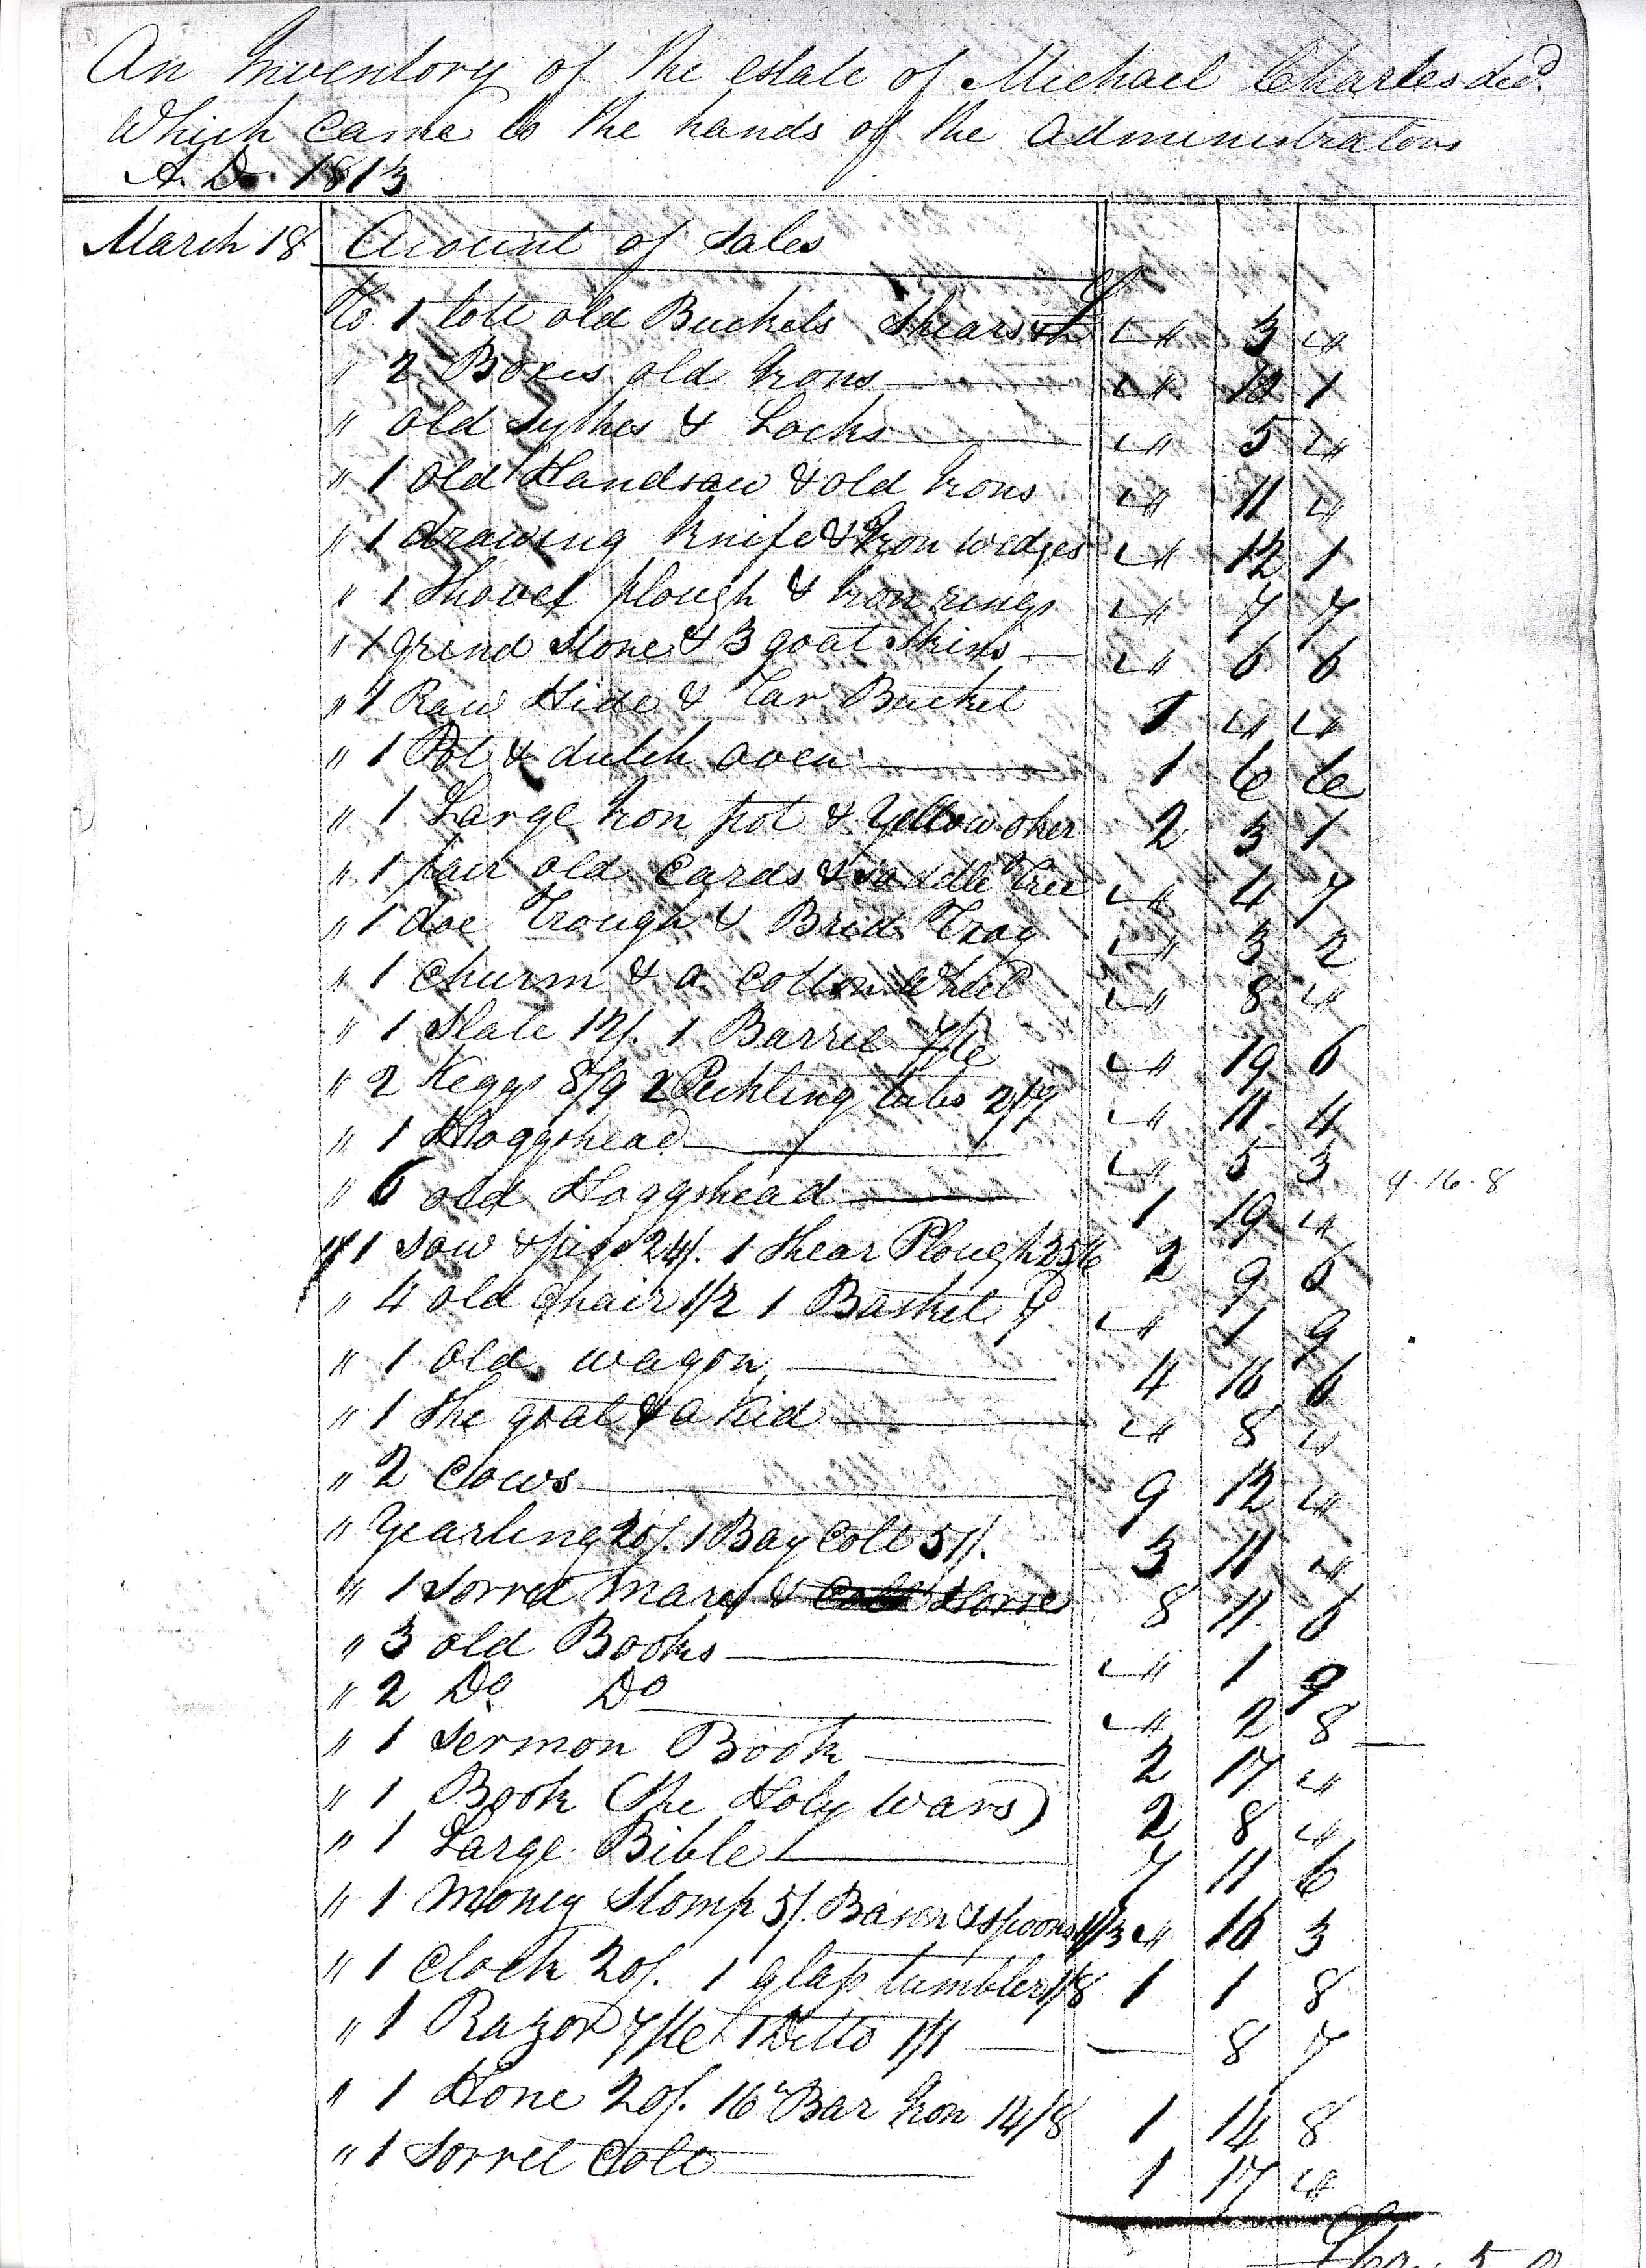 An Inventory of the estate of Michael Charles decd.
Which Came to the hands of the administrators
A. D. 1813
March 18 Acount of Sales
To 1 lott old Buckels Shears &c " 3 "
" 2 Boxes old Irons " 10 1
" old Sythes & Locks " 5 "
" 1 old Handsaw & old Irons " 11 "
" 1 drawing knife & Iron wedges " 12 1
" 1 Shovel plough & Iron rings " 7 7
" 1 grind Stone & 3 goat Skins " 6 6
" 1 Raw Hide & Tar Bucket 1 " "
" 1 Pot & dutch oven 1 6 6
" 1 Large Iron pot & Yellow oker 2 3 1
" 1 pair old Cards & saddle Tree " 4 7
" 1 doe Trough & Bred Tray " 3 2
" 1 Churm & a Cotton Wheel " 8 "
" 1 Slate 12/. 1 Barrel 7/6 " 19 6
" 2 Keggs 8/9 2 Peckling tubs 2/7 " 11 4
" 1 Hoggshead " 5 3
" 6 old Hoggshead 1 19 " 9-16-8
" 1 Sow & pigs 24/. 1 Shear Plough 25/6 2 9 6
" 4 old Chair 1/2 1 Basket 7 " 1 9
" 1 old wagon 4 16 6
" 1 She goat & a Kid " 8 "
" 2 Cows 9 12 "
" Yearling 20/. 1 Bay Colt 51/. 3 11 "
" 1 Sorrel Mare & Horse 8 11 6
" 3 old Books " 1 9
" 2 Do Do " 2 8
" 1 Sermon Book 2 17 "
" 1 Book (The Holy Wars) 2 8 "
" 1 Large Bible 7 11 6
" 1 Money Stomp 5/. Bason & spoons 11/3 " 16 3
" 1 Clock 20/. 1 glass tumbler 1/8 1 1 8
" 1 Razor 7/6 1 Ditto 1/1 8 7
" 1 Hone 20/. 16 Bar Iron 14/8 1 14 8
" 1 Sorrel Colt 1 17 "